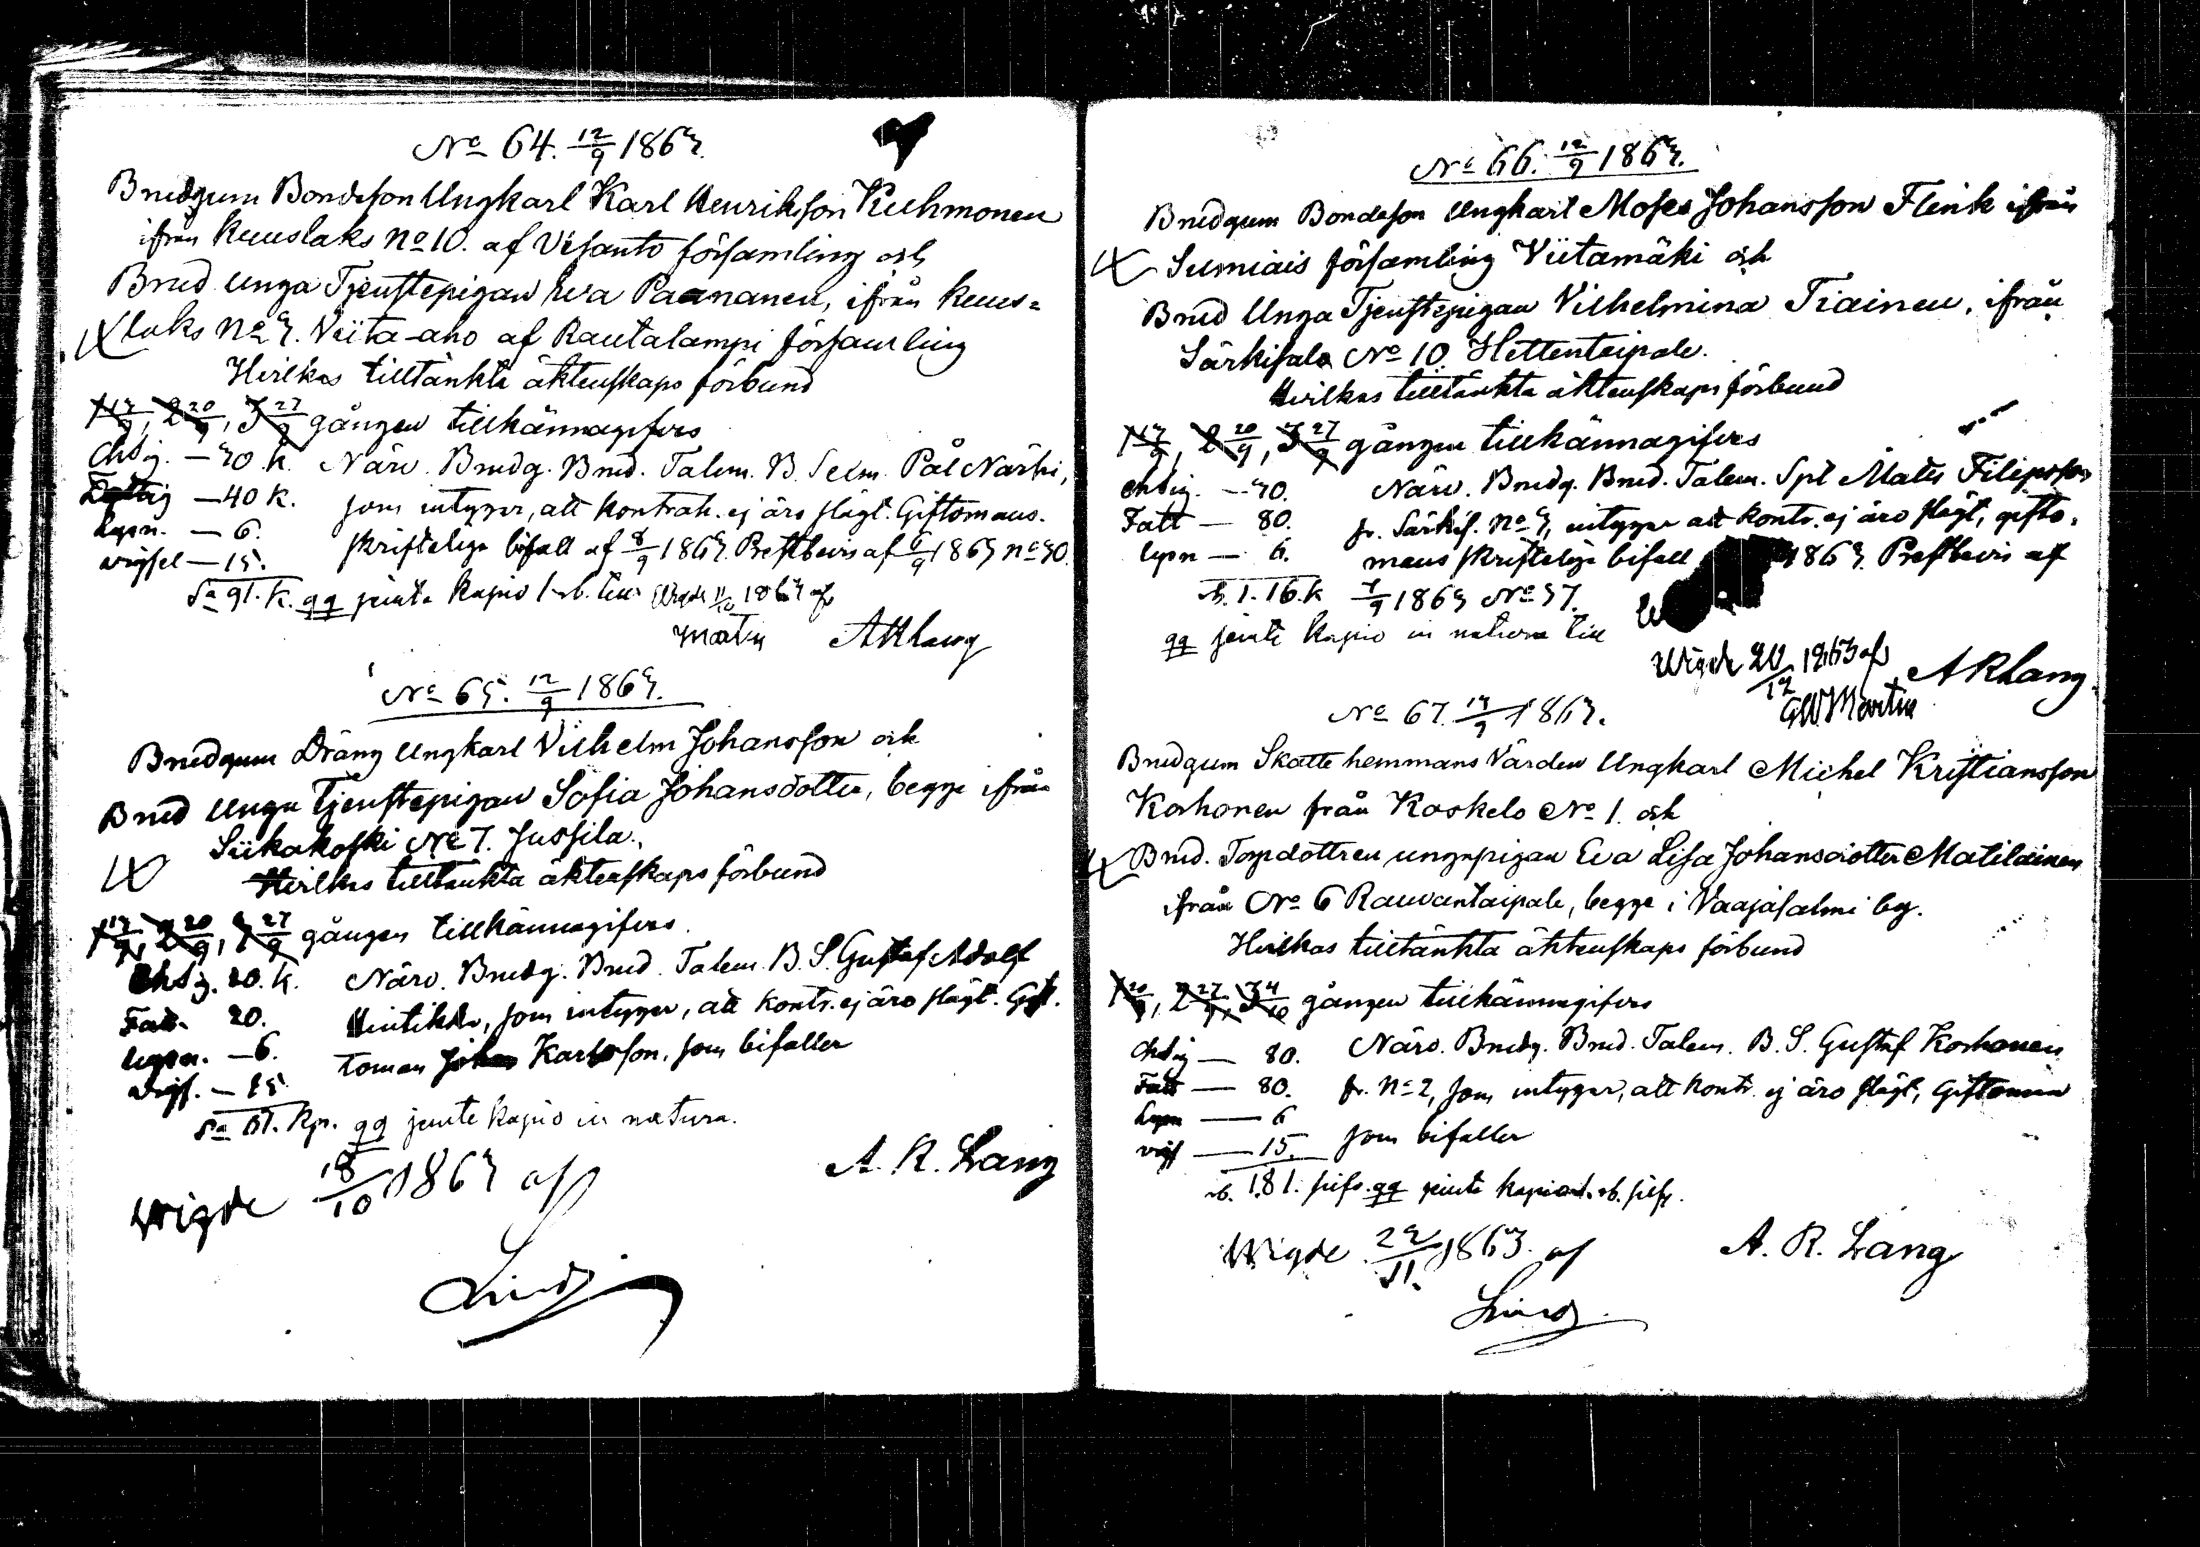 No 64. 12/9 1863.
Brudgum Bondeson Ungkarl Karl Henriksson Kuhmonen
ifrån Kuuslaks No 10. af Vesanto församling och
Brud unga Tjenstepigan Eva Paananen, ifrån Kuus=
laks No 3. Viita-aho af Rautalampi församling
Hvilkas tilltänkta äktenskaps förbund
1 13/9, 2 20/9, 3 27/9 gången tillkännagifves
Chdig. — 30 k. Närv. Brudg. Brud. Talem. B. Selm. Pål Närhi,
— 40 k. som intygar, att kontrah. ej äro slägt. Giftomans.
lypn. — 6. skriftelige bifall af 8/9 1863. Prestbevis af 6/9 1863 No 30.
vigsel — 15.
Sa 91. k. qq jemte kapio 1 rb. till Wigde 11/10 1863 af
Martin ARLang
No 65. 12/9 1863.
Brudgum Dräng Ungkarl Vilhelm Johansson och
Brud Unga Tjenstepigan Sofia Johansdotter, begge ifrån
Siikakoski No 7. Jussila.
Hvilkas tilltänkta äktenskaps förbund
1 13/9, 2 20/9, 3 27/9 gången tillkännagifves.
Chdig. 20. k. Närv. Brudg. Brud. Talem. B. S. Gustaf Adolf
Fatt. 20. Hintikka, som intygar, att kontr. ej äro slägt. Gift.
lypn. — 6. toman Johan Karlsson, som bifaller
vigs. — 15
Sa 61. kp. qq jemte kapio in natura.
A. R. Lang
Wigde 18/10 1863 af
Lind
No 66. 12/9 1863.
Brudgum Bondeson Ungkarl Moses Johansson Flink ifrån
Sumiais församling Viitamäki och
Brud Unga Tjenstepigan Vilhelmina Tiainen, ifrån
Särkisalo No 10. Hettenteipale.
Hvilkas tilltänkta äktenskaps förbund
1 13/9, 2 20/9, 3 27/9 gången tillkännagifves
Chdig. — 30. Närv. Brudg. Brud. Talem. Spl Mats Filipsson
Fatt — 80. fr. Särkis. No 3, intygar att kontr. ej äro slägt, gifto=
lypn — 6. mans skriftelige bifall 1863. Prestbevis af
rb. 1. 16. k 7/9 1863 No 37.
qq jemte kapio in natura till
Wigde 20/12 1863 af
GWMartin ARLang.
No 67. 13/9 1863.
Brudgum Skattehemmans Värden Ungkarl Michel Kristiansson
Korhonen från Koskelo No 1. och
Brud. Torpdottren ungapigan Eva Lisa Johansdotter Matilainen
ifrån No 6 Rauvantaipale, begge i Vaajasalmi by.
Hvilkas tilltänkta äktenskaps förbund
1 20/9, 2 27/9, 3 4/10 gången tillkännagifves
Chdig — 80. Närv. Brudg. Brud. Talem. B. S. Gustaf Korhonen
Fatt — 80. fr. No 2, som intygar, att kontr. ej äro slägt, Giftoman
lypn — 6
vigs — 15. som bifaller
rb. 1.81. silfr. qq jemte kapio rb. silfr.
Wigde 22/11 1863. af A. R. Lang
Lind